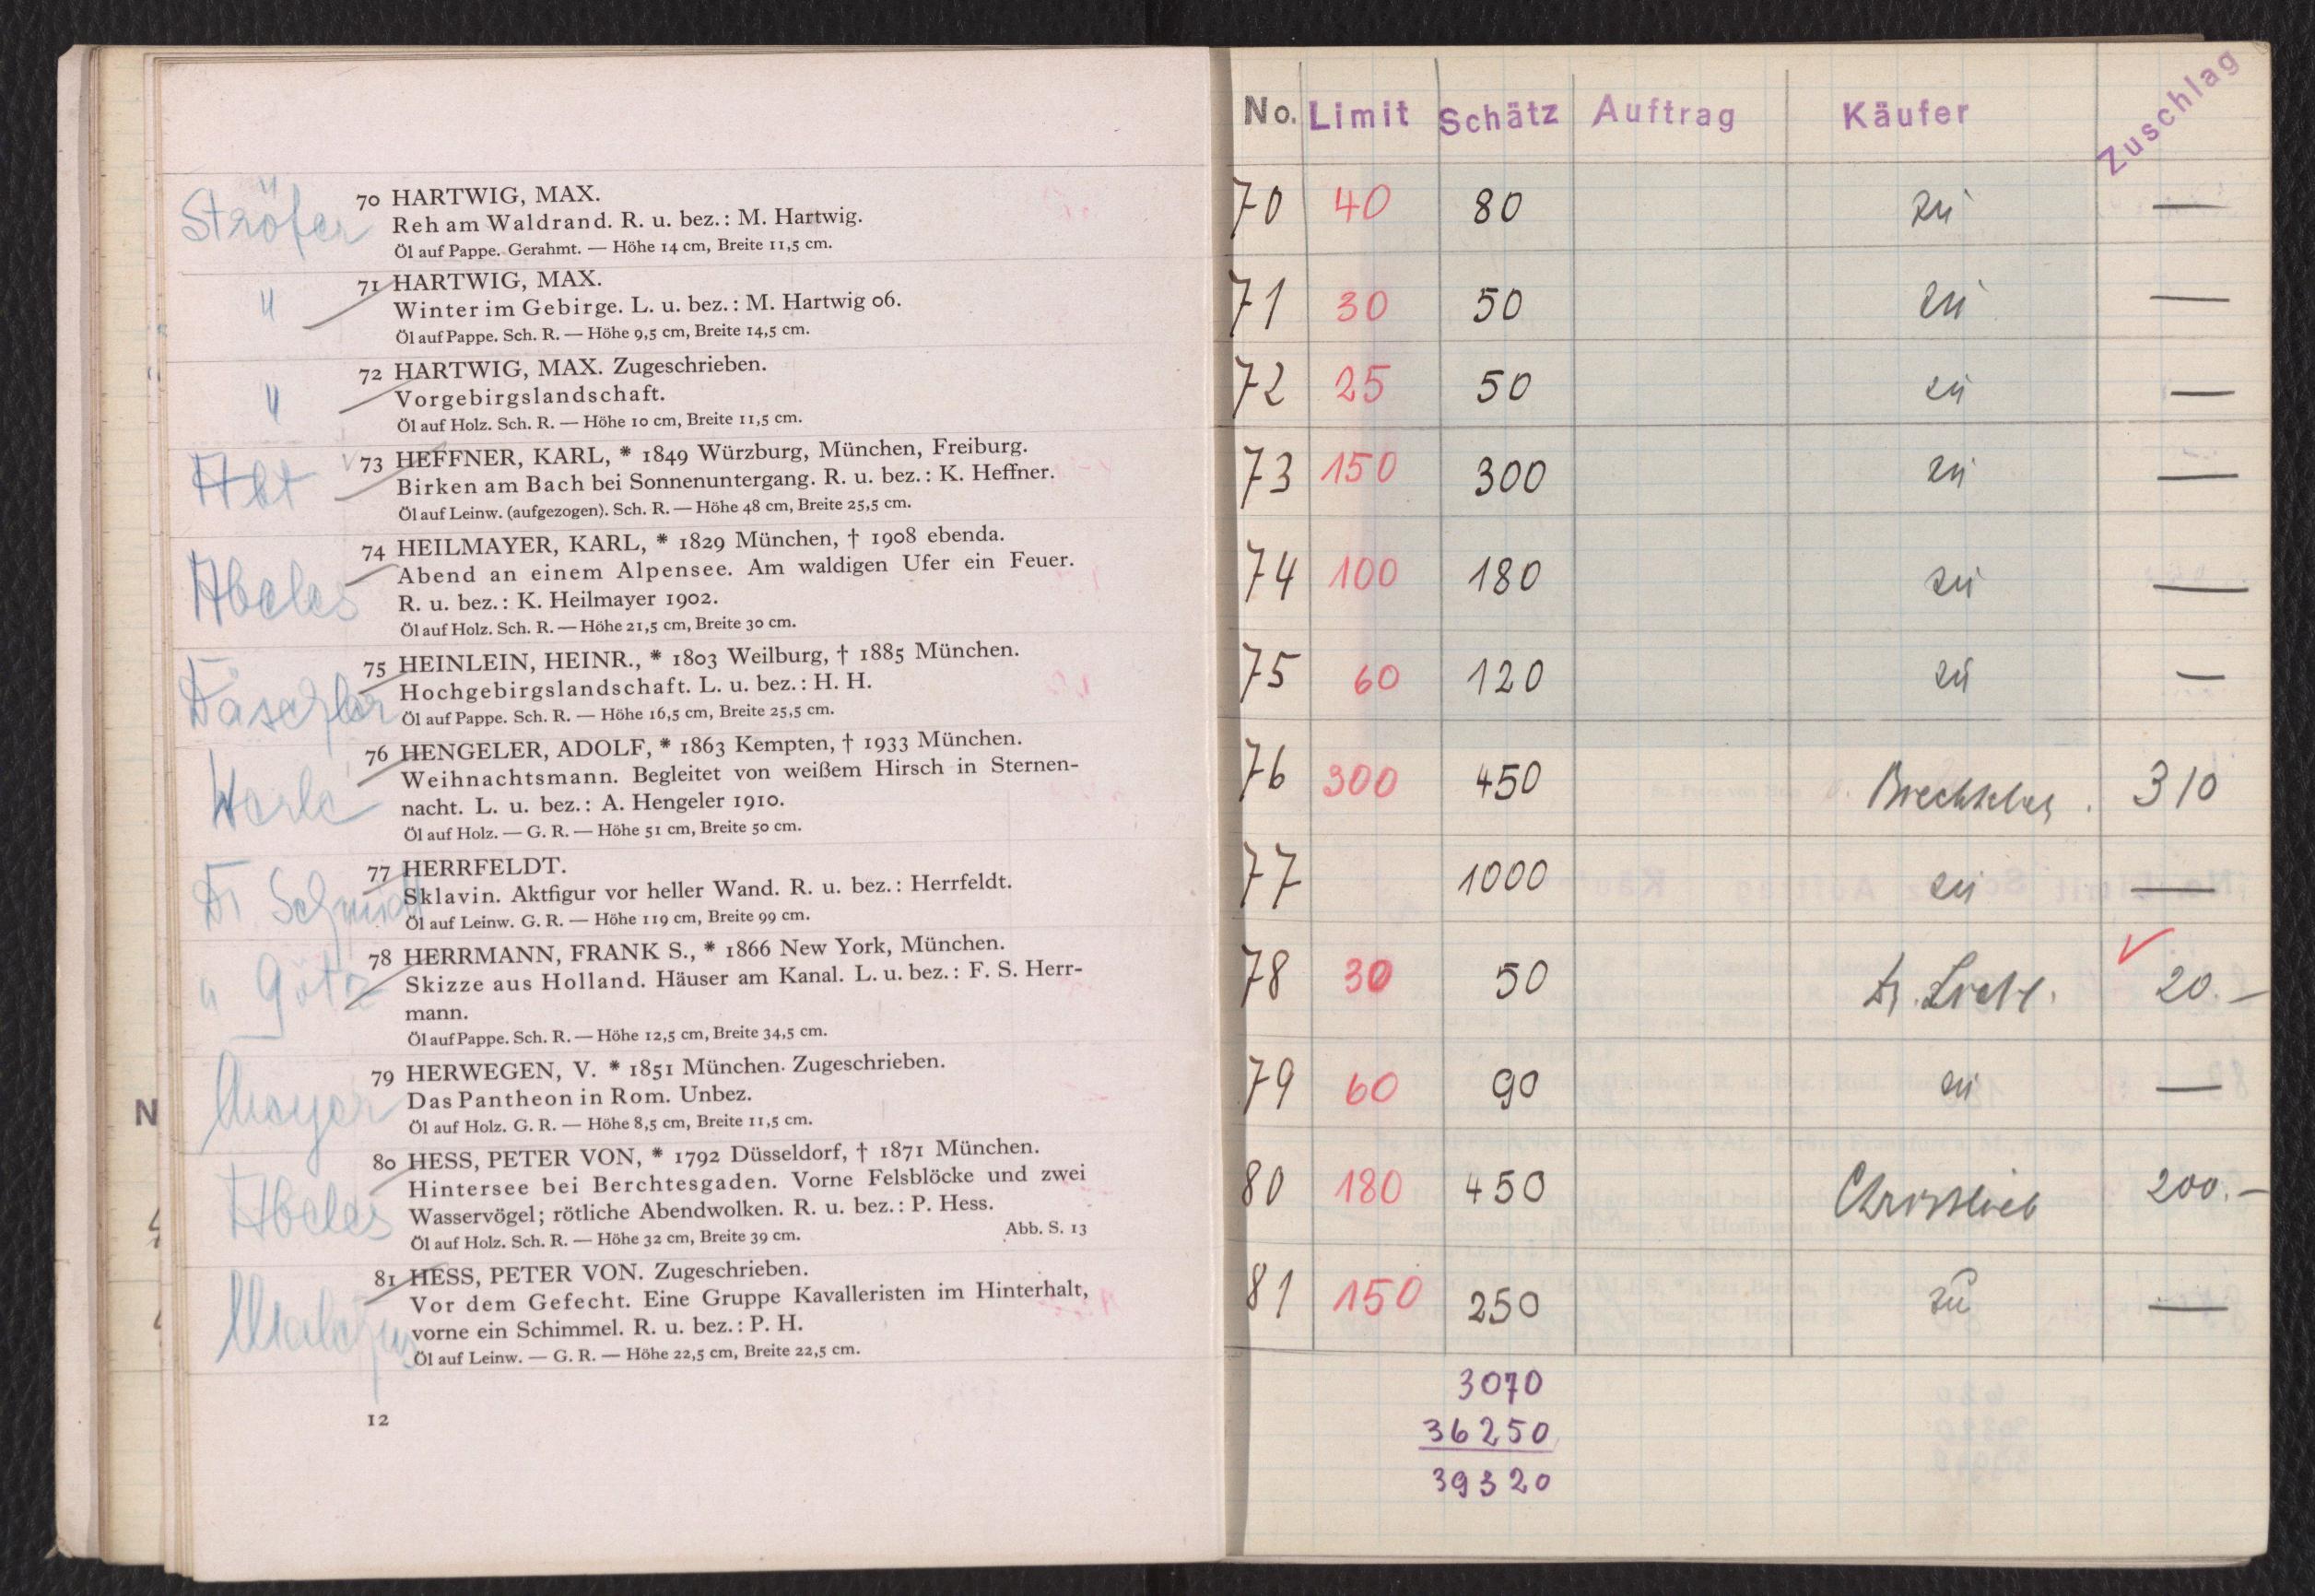 Ströfer
70 HARTWIG, MAX.
Reh am Waldrand. R. u. bez.: M. Hartwig.
Öl auf Pappe. Gerahmt. — Höhe 14 cm, Breite 11,5 cm.
"
71 HARTWIG, MAX.
Winter im Gebirge. L. u. bez.: M. Hartwig 06.
Öl auf Pappe. Sch. R. — Höhe 9,5 cm, Breite 14,5 cm.
"
72 HARTWIG, MAX. Zugeschrieben.
Vorgebirgslandschaft.
Öl auf Holz. Sch. R. — Höhe 10 cm, Breite 11,5 cm.
Abt
73 HEFFNER, KARL, * 1849 Würzburg, München, Freiburg.
Birken am Bach bei Sonnenuntergang. R. u. bez.: K. Heffner.
Öl auf Leinw. (aufgezogen). Sch. R. — Höhe 48 cm, Breite 25,5 cm.
Abeles
74 HEILMAYER, KARL, * 1829 München, † 1908 ebenda.
Abend an einem Alpensee. Am waldigen Ufer ein Feuer.
R. u. bez.: K. Heilmayer 1902.
Öl auf Holz. Sch. R. — Höhe 21,5 cm, Breite 30 cm.
75 HEINLEIN, HEINR., * 1803 Weilburg, † 1885 München.
Hochgebirgslandschaft. L. u. bez.: H. H.
Öl auf Pappe. Sch. R. — Höhe 16,5 cm, Breite 25,5 cm.
76 HENGELER, ADOLF, * 1863 Kempten, † 1933 München.
Weihnachtsmann. Begleitet von weißem Hirsch in Sternen-
nacht. L. u. bez.: A. Hengeler 1910.
Öl auf Holz. — G. R. — Höhe 51 cm, Breite 50 cm.
Dr. Schmidt
77 HERRFELDT.
Sklavin. Aktfigur vor heller Wand. R. u. bez.: Herrfeldt.
Öl auf Leinw. G. R. — Höhe 119 cm, Breite 99 cm.
" Götz
78 HERRMANN, FRANK S., * 1866 New York, München.
Skizze aus Holland. Häuser am Kanal. L. u. bez.: F. S. Herr-
mann.
Öl auf Pappe. Sch. R. — Höhe 12,5 cm, Breite 34,5 cm.
Mayer
79 HERWEGEN, V. * 1851 München. Zugeschrieben.
Das Pantheon in Rom. Unbez.
Öl auf Holz. G. R. — Höhe 8,5 cm, Breite 11,5 cm.
Abeles
80 HESS, PETER VON, * 1792 Düsseldorf, † 1871 München.
Hintersee bei Berchtesgaden. Vorne Felsblöcke und zwei
Wasservögel; rötliche Abendwolken. R. u. bez.: P. Hess.
Öl auf Holz. Sch. R. — Höhe 32 cm, Breite 39 cm. Abb. S. 13
81 HESS, PETER VON. Zugeschrieben.
Vor dem Gefecht. Eine Gruppe Kavalleristen im Hinterhalt,
vorne ein Schimmel. R. u. bez.: P. H.
Öl auf Leinw. — G. R. — Höhe 22,5 cm, Breite 22,5 cm.
12
N
No. Limit Schätz Auftrag Käufer Zuschlag
70 40 80 zü —
71 30 50 zü —
72 25 50 zü —
73 150 300 zü —
74 100 180 zü —
75 60 120 zü —
76 300 450 310
77 1000 zü —
78 30 50 20.—
79 60 90 zü —
80 180 450 Christlieb 200.—
81 150 250 zü —
3070
36250
39320